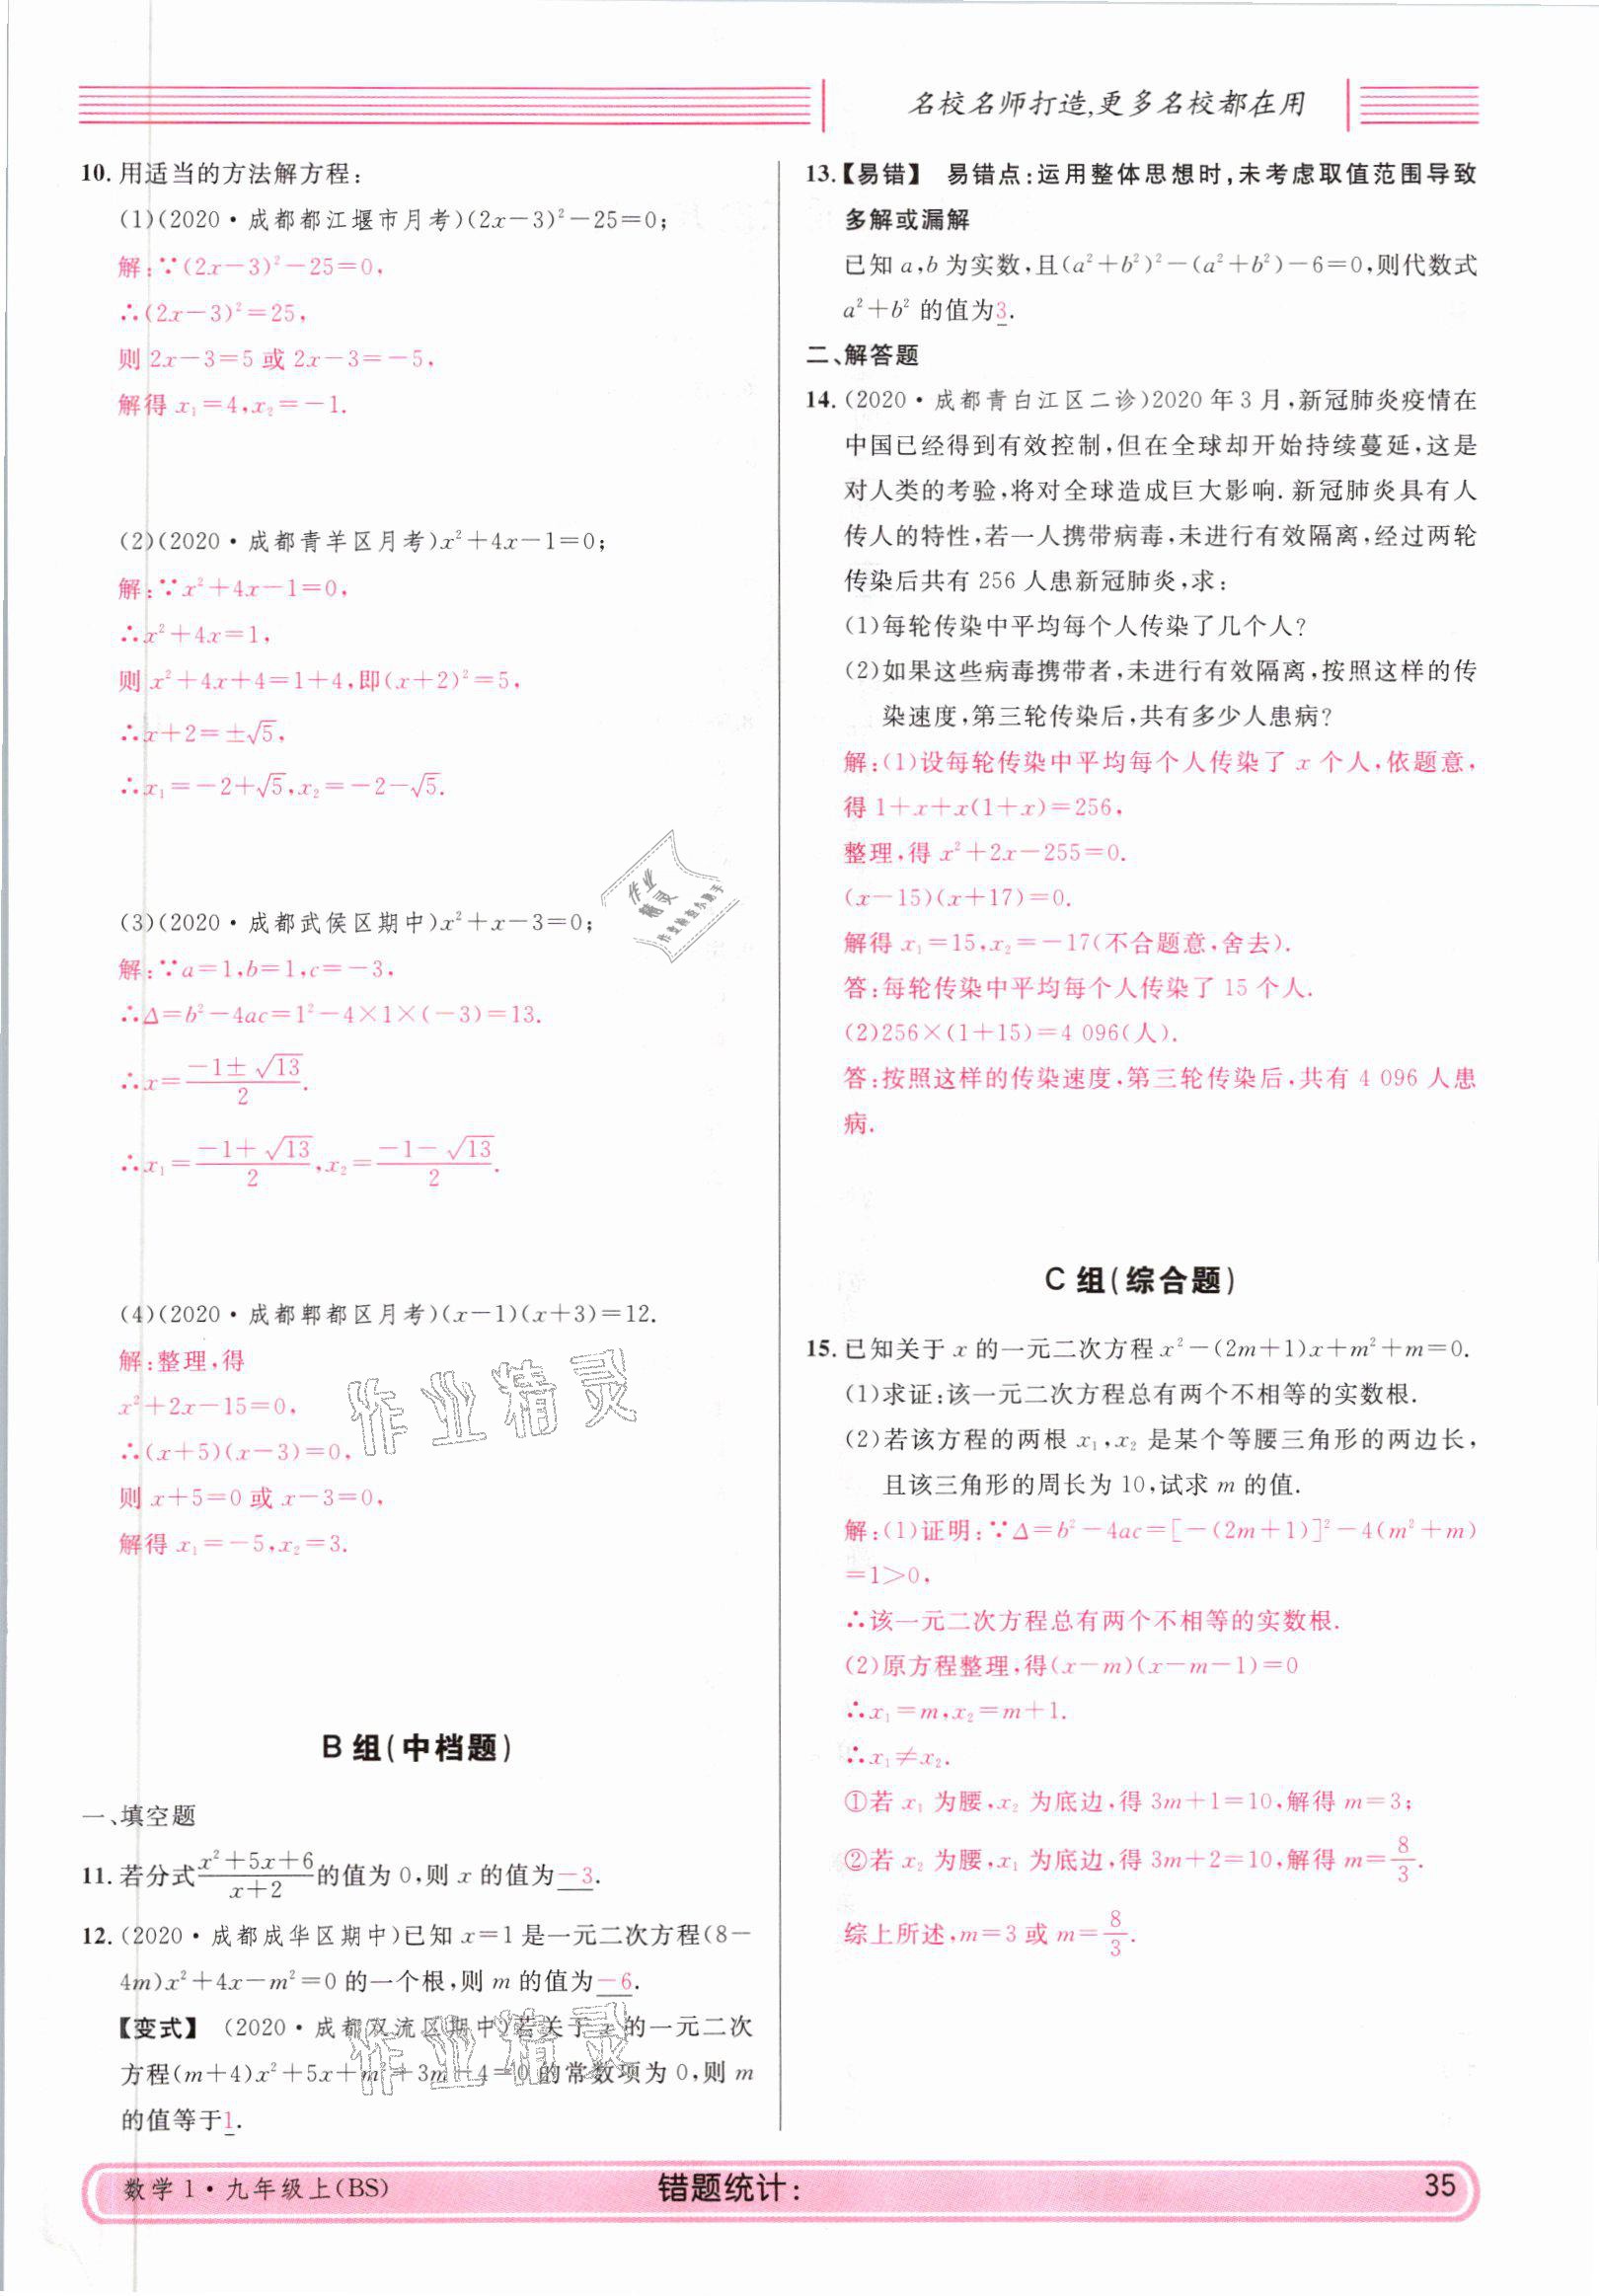 名校名师打造,更多名校都在用
10. 用适当的方法解方程:
(1)(2020·成都都江堰市月考)(2x-3)²-25=0;
解:∵(2x-3)²-25=0,
∴(2x-3)²=25,
则 2x-3=5 或 2x-3=-5,
解得 x₁=4,x₂=-1.
(2)(2020·成都青羊区月考)x²+4x-1=0;
解:∵x²+4x-1=0,
∴x²+4x=1,
则 x²+4x+4=1+4,即(x+2)²=5,
∴x+2=±√5,
∴x₁=-2+√5,x₂=-2-√5.
(3)(2020·成都武侯区期中)x²+x-3=0;
解:∵a=1,b=1,c=-3,
∴Δ=b²-4ac=1²-4×1×(-3)=13.
∴x=(-1±√13)/2.
∴x₁=(-1+√13)/2,x₂=(-1-√13)/2.
(4)(2020·成都郫都区月考)(x-1)(x+3)=12.
解:整理,得
x²+2x-15=0,
∴(x+5)(x-3)=0,
则 x+5=0 或 x-3=0,
解得 x₁=-5,x₂=3.
B 组(中档题)
一、填空题
11. 若分式(x²+5x+6)/(x+2)的值为 0,则 x 的值为-3.
12. (2020·成都成华区期中)已知 x=1 是一元二次方程(8-
4m)x²+4x-m²=0 的一个根,则 m 的值为-6.
【变式】 (2020·成都双流区期中)若关于 x 的一元二次
方程(m+4)x²+5x+m²+3m-4=0 的常数项为 0,则 m
的值等于1.
13.【易错】 易错点:运用整体思想时,未考虑取值范围导致
多解或漏解
已知 a,b 为实数,且(a²+b²)²-(a²+b²)-6=0,则代数式
a²+b² 的值为3.
二、解答题
14. (2020·成都青白江区二诊)2020 年 3 月,新冠肺炎疫情在
中国已经得到有效控制,但在全球却开始持续蔓延,这是
对人类的考验,将对全球造成巨大影响. 新冠肺炎具有人
传人的特性,若一人携带病毒,未进行有效隔离,经过两轮
传染后共有 256 人患新冠肺炎,求:
(1)每轮传染中平均每个人传染了几个人?
(2)如果这些病毒携带者,未进行有效隔离,按照这样的传
染速度,第三轮传染后,共有多少人患病?
解:(1)设每轮传染中平均每个人传染了 x 个人,依题意,
得 1+x+x(1+x)=256,
整理,得 x²+2x-255=0.
(x-15)(x+17)=0.
解得 x₁=15,x₂=-17(不合题意,舍去).
答:每轮传染中平均每个人传染了 15 个人.
(2)256×(1+15)=4 096(人).
答:按照这样的传染速度,第三轮传染后,共有 4 096 人患
病.
C 组(综合题)
15. 已知关于 x 的一元二次方程 x²-(2m+1)x+m²+m=0.
(1)求证:该一元二次方程总有两个不相等的实数根.
(2)若该方程的两根 x₁,x₂ 是某个等腰三角形的两边长,
且该三角形的周长为 10,试求 m 的值.
解:(1)证明:∵Δ=b²-4ac=[-(2m+1)]²-4(m²+m)
=1>0,
∴该一元二次方程总有两个不相等的实数根.
(2)原方程整理,得(x-m)(x-m-1)=0
∴x₁=m,x₂=m+1.
∴x₁≠x₂.
①若 x₁ 为腰,x₂ 为底边,得 3m+1=10,解得 m=3;
②若 x₂ 为腰,x₁ 为底边,得 3m+2=10,解得 m=8/3.
综上所述,m=3 或 m=8/3.
作业
精灵
作业检查小助手
作业精灵
作业精灵
数学 1·九年级上(BS)
错题统计:
35